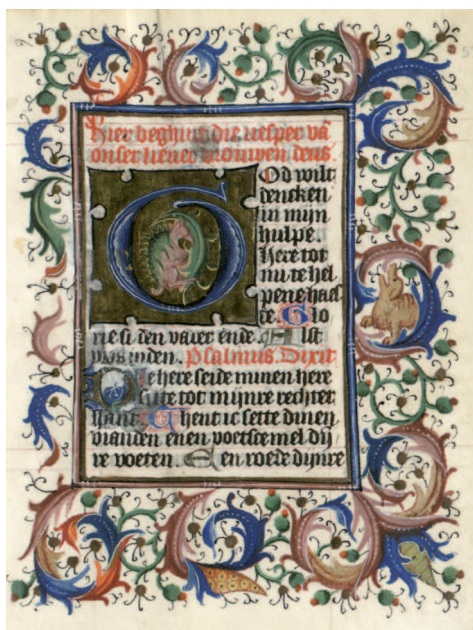 Hier beghint die vesper vā
onser liever vrouwen deus
God wilt
dencken
in mijn
hulpe.
Here tot
mi te hel
pene haes
te. Glo
rie si den vader ende. Alst
was inden. Psalmus. Dixit
Die here seide minen here
sitte tot mijnre rechter
hant. Thent ic sette dinen
vianden enen voetscemel dij
re voeten. Een roede dijnre